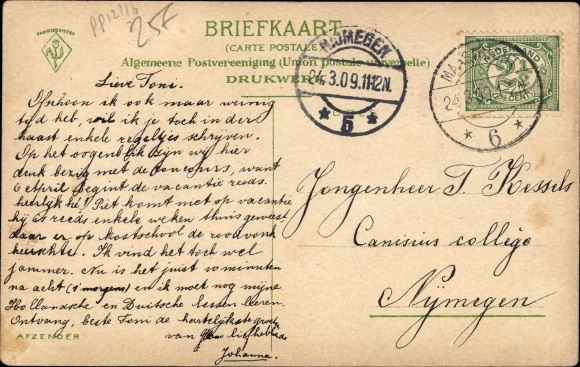 PP12/16
25f
FABRIEKSMERK
BRIEFKAART
(CARTE POSTALE)
Algemeene Postvereeniging (Union postale universelle)
DRUKWERK
NIJMEGEN
24.3.09.11-12N.
5
6
NEDERLAND
2½
Lieve Toni.
Ofschoon ik ook maar weinig
tijd heb, wil ik je toch in der
haast enkele regeltjes schrijven.
Op het oogenblik zijn wij hier
druk bezig met de Concours, want
6 April begint de vacantie reeds.
heerlijk hé! Piet komt niet op vacantie
hij is reeds enkele weken thuis geweest
daar er op kostschool de roodvonk
heerschte. Ik vind het toch wel
jammer. Nu is het juist 10 minuten
na acht (s'morgens) en ik moet nog mijne
Hollandsche en Duitsche lessen leeren.
Ontvang, beste Toni de hartelijkste groet
van liefhebb
Johanna.
AFZENDER
Jongenheer T. Kessels
Canisius collége
Nijmegen